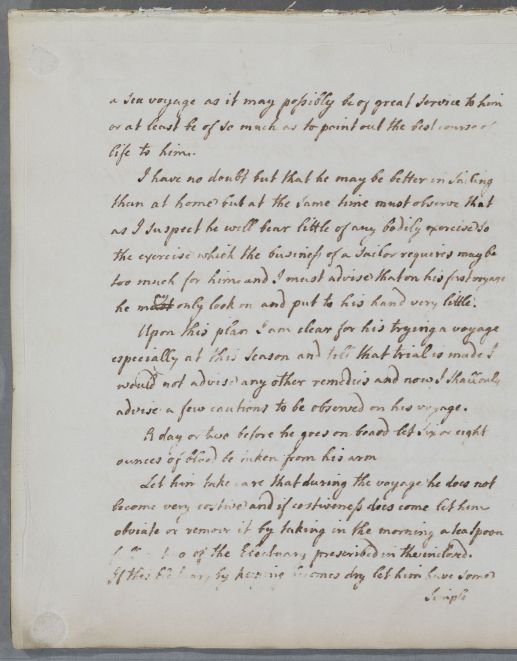 a sea voyage as it may possibly be of great service to him
or at least be of so much as to point out the best course of
life to him.
I have no doubt but that he may be better in Sailing
than at home but at the same time must observe that
as I suspect he will bear little of any bodily exercise so
the exercise which the business of a sailor requires may be
too much for him and I must advise that on his first voyage
he only look on and put to his hand very little.
Upon this plan I am clear for his trying a voyage
especially at this Season and till that trial is made I
would not advise any other remedies and now I shall only
advise a few cautions to be observed on his voyage.
A day or two before he goes on board let Six or eight
ounces of blood be taken from his arm
Let him take care that during the voyage he does not
become very costive and if costiveness does come let him
obviate or remove it by taking in the morning a teaspoon
two of the Electuary prescribed in the inclosed.
If this Electuary by keeping becomes dry let him have some
Simple